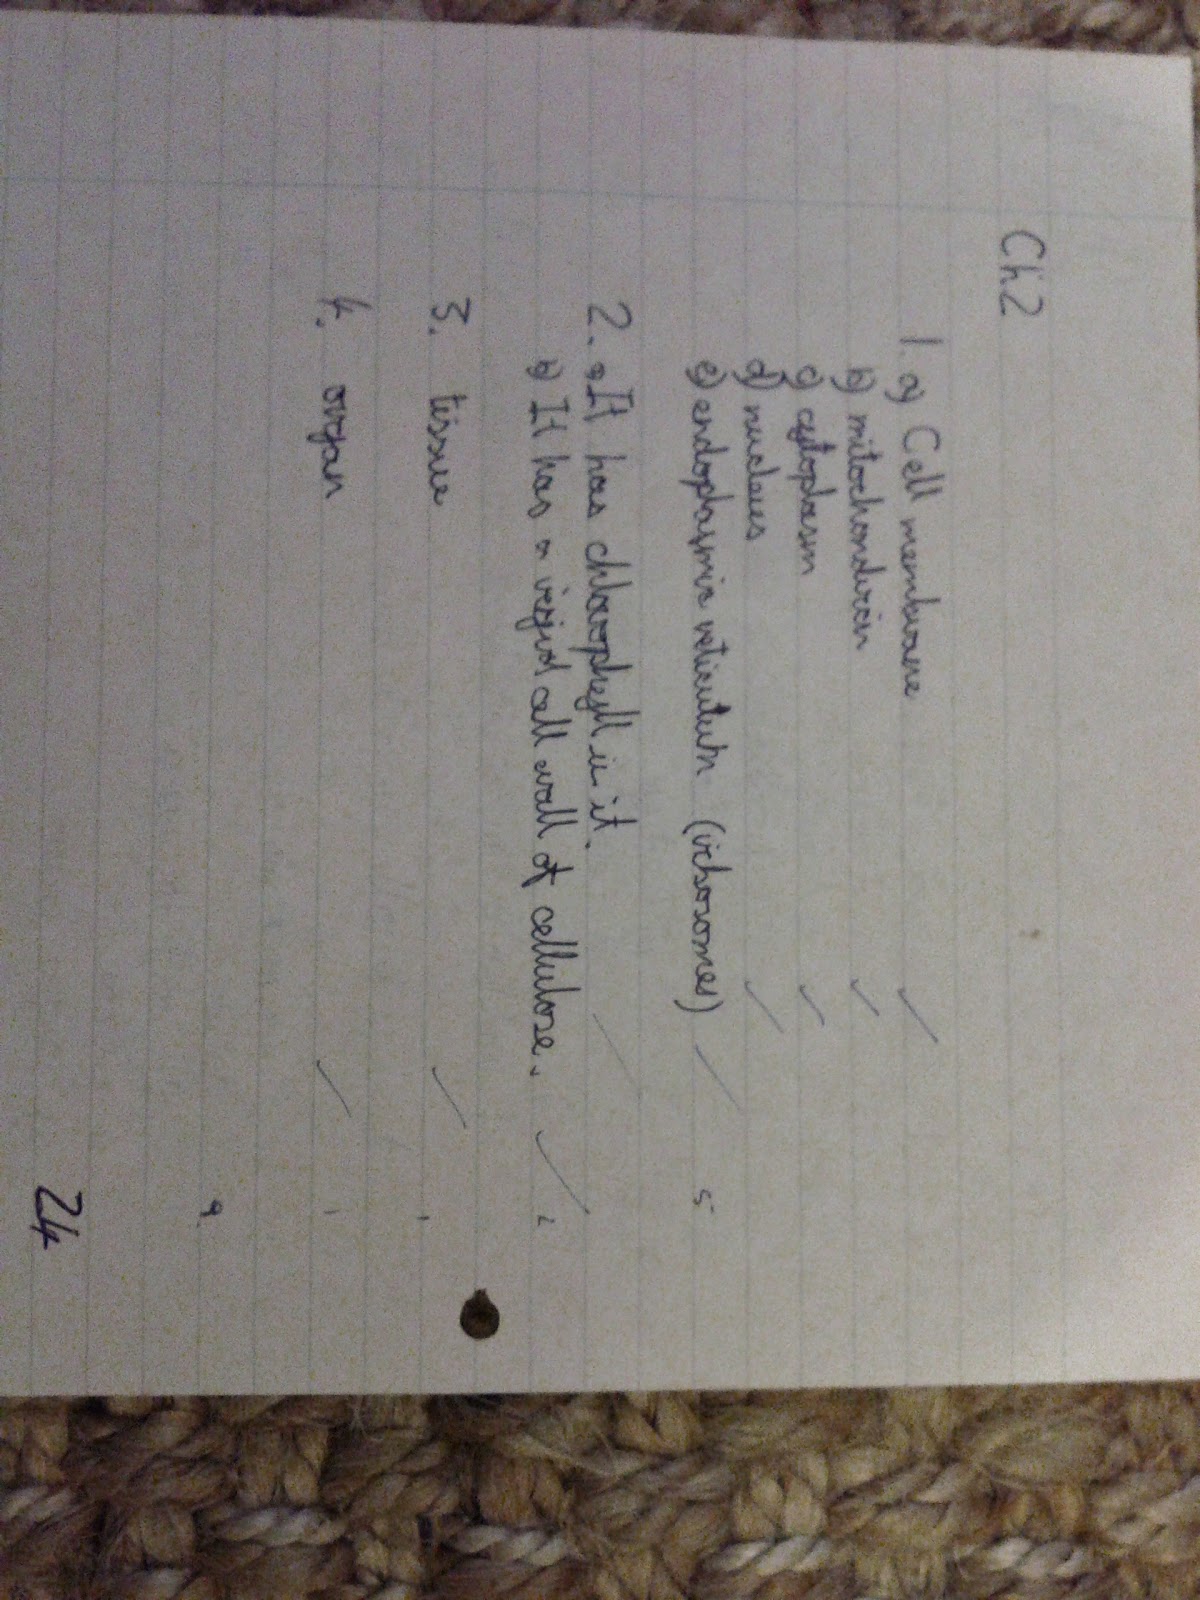 Ch.2
1. a) Cell membrane
b) mitochondrion
c) cytoplasm
d) nucleus
e) endoplasmic reticulum (ribosomes) 5
2. a) It has chlorophyll in it.
b) It has a rigid cell wall of cellulose. 2
3. tissue 1
4. organ 1
9
24